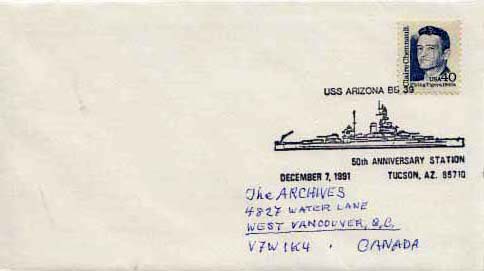 Claire Chennault
USA 40
Flying Tigers, 1940s
USS ARIZONA BB 39
50th ANNIVERSARY STATION
DECEMBER 7, 1991 TUCSON, AZ. 85710
The ARCHIVES
4827 WATER LANE
WEST VANCOUVER, B.C.
V7W 1K4 . CANADA